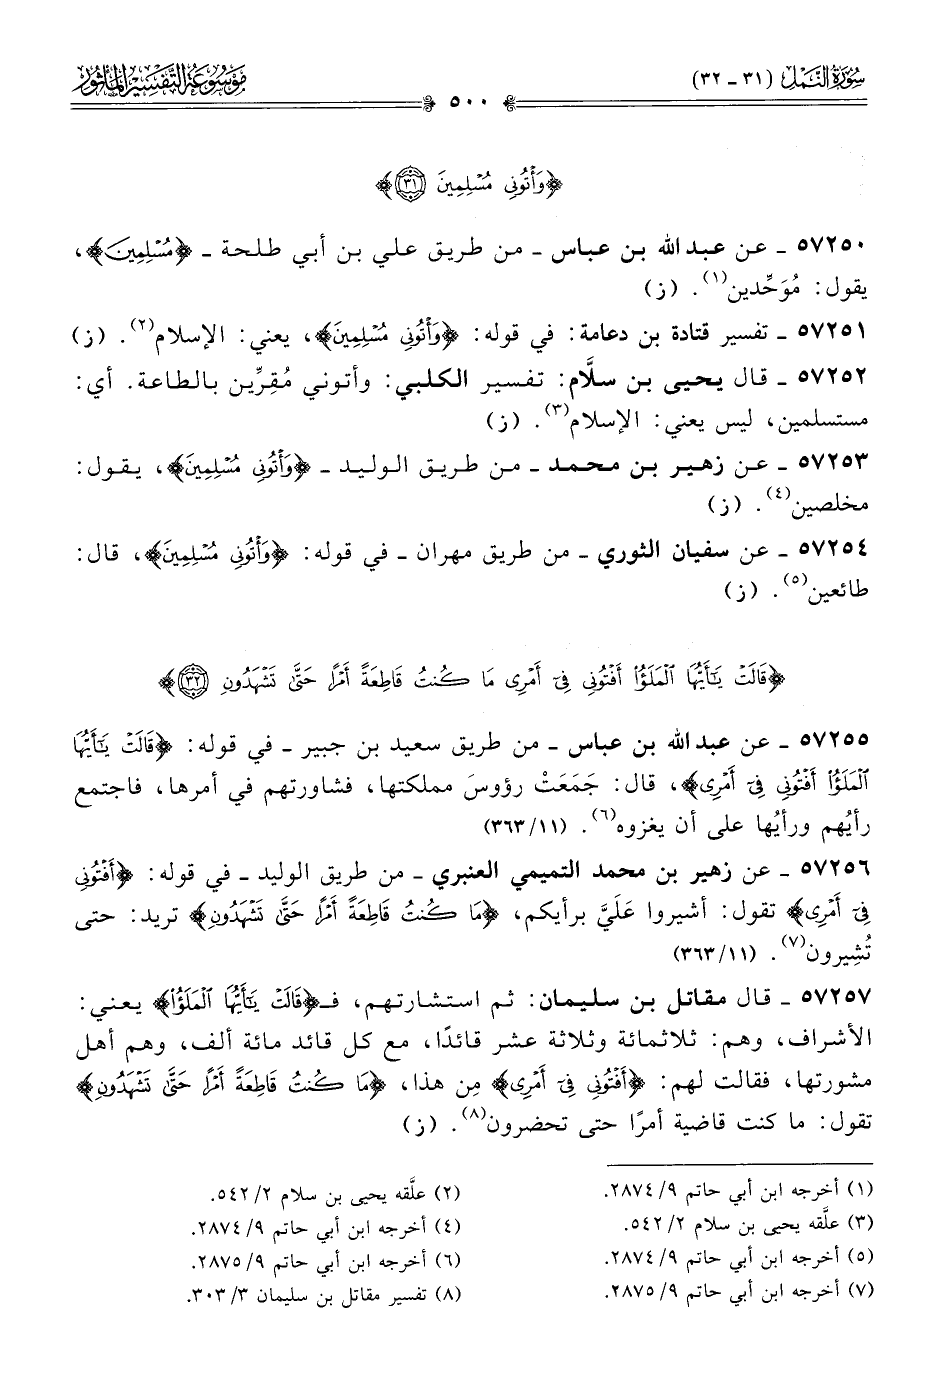 سُورَةُ النَّمْلِ (٣١ - ٣٢)
مَوْسُوعَةُ التَّفْسِيرِ المَأْثُور
٥٠٠
﴿وَأْتُونِي مُسْلِمِينَ ۝٣١﴾
٥٧٢٥٠ ـ عن عبد الله بن عباس ـ من طريق علي بن أبي طلحة ـ ﴿مُسْلِمِينَ﴾،
يقول: مُوَحِّدين(١). (ز)
٥٧٢٥١ ـ تفسير قتادة بن دعامة: في قوله: ﴿وَأْتُونِي مُسْلِمِينَ﴾، يعني: الإسلام(٢). (ز)
٥٧٢٥٢ ـ قال يحيى بن سلَّام: تفسير الكلبي: وأتوني مُقِرِّين بالطاعة. أي:
مستسلمين، ليس يعني: الإسلام(٣). (ز)
٥٧٢٥٣ ـ عن زهير بن محمد ـ من طريق الوليد ـ ﴿وَأْتُونِي مُسْلِمِينَ﴾، يقول:
مخلصين(٤). (ز)
٥٧٢٥٤ ـ عن سفيان الثوري ـ من طريق مهران ـ في قوله: ﴿وَأْتُونِي مُسْلِمِينَ﴾، قال:
طائعين(٥). (ز)
﴿قَالَتْ يَٰٓأَيُّهَا ٱلْمَلَؤُا۟ أَفْتُونِي فِىٓ أَمْرِى مَا كُنتُ قَاطِعَةً أَمْرًا حَتَّىٰ تَشْهَدُونِ ۝٣٢﴾
٥٧٢٥٥ ـ عن عبد الله بن عباس ـ من طريق سعيد بن جبير ـ في قوله: ﴿قَالَتْ يَٰٓأَيُّهَا
ٱلْمَلَؤُا۟ أَفْتُونِي فِىٓ أَمْرِى﴾، قال: جَمَعَتْ رؤوسَ مملكتها، فشاورتهم في أمرها، فاجتمع
رأيُهم ورأيُها على أن يغزوه(٦). (١١/٣٦٣)
٥٧٢٥٦ ـ عن زهير بن محمد التميمي العنبري ـ من طريق الوليد ـ في قوله: ﴿أَفْتُونِي
فِىٓ أَمْرِى﴾ تقول: أشيروا عَلَيَّ برأيكم، ﴿مَا كُنتُ قَاطِعَةً أَمْرًا حَتَّىٰ تَشْهَدُونِ﴾ تريد: حتى
تُشِيرون(٧). (١١/٣٦٣)
٥٧٢٥٧ ـ قال مقاتل بن سليمان: ثم استشارتهم، فـ﴿قَالَتْ يَٰٓأَيُّهَا ٱلْمَلَؤُا۟﴾ يعني:
الأشراف، وهم: ثلاثمائة وثلاثة عشر قائدًا، مع كل قائد مائة ألف، وهم أهل
مشورتها، فقالت لهم: ﴿أَفْتُونِي فِىٓ أَمْرِى﴾ مِن هذا، ﴿مَا كُنتُ قَاطِعَةً أَمْرًا حَتَّىٰ تَشْهَدُونِ﴾
تقول: ما كنت قاضية أمرًا حتى تحضرون(٨). (ز)
(١) أخرجه ابن أبي حاتم ٩/ ٢٨٧٤.
(٢) علَّقه يحيى بن سلام ٢/ ٥٤٢.
(٣) علَّقه يحيى بن سلام ٢/ ٥٤٢.
(٤) أخرجه ابن أبي حاتم ٩/ ٢٨٧٤.
(٥) أخرجه ابن أبي حاتم ٩/ ٢٨٧٤.
(٦) أخرجه ابن أبي حاتم ٩/ ٢٨٧٥.
(٧) أخرجه ابن أبي حاتم ٩/ ٢٨٧٥.
(٨) تفسير مقاتل بن سليمان ٣/ ٣٠٣.